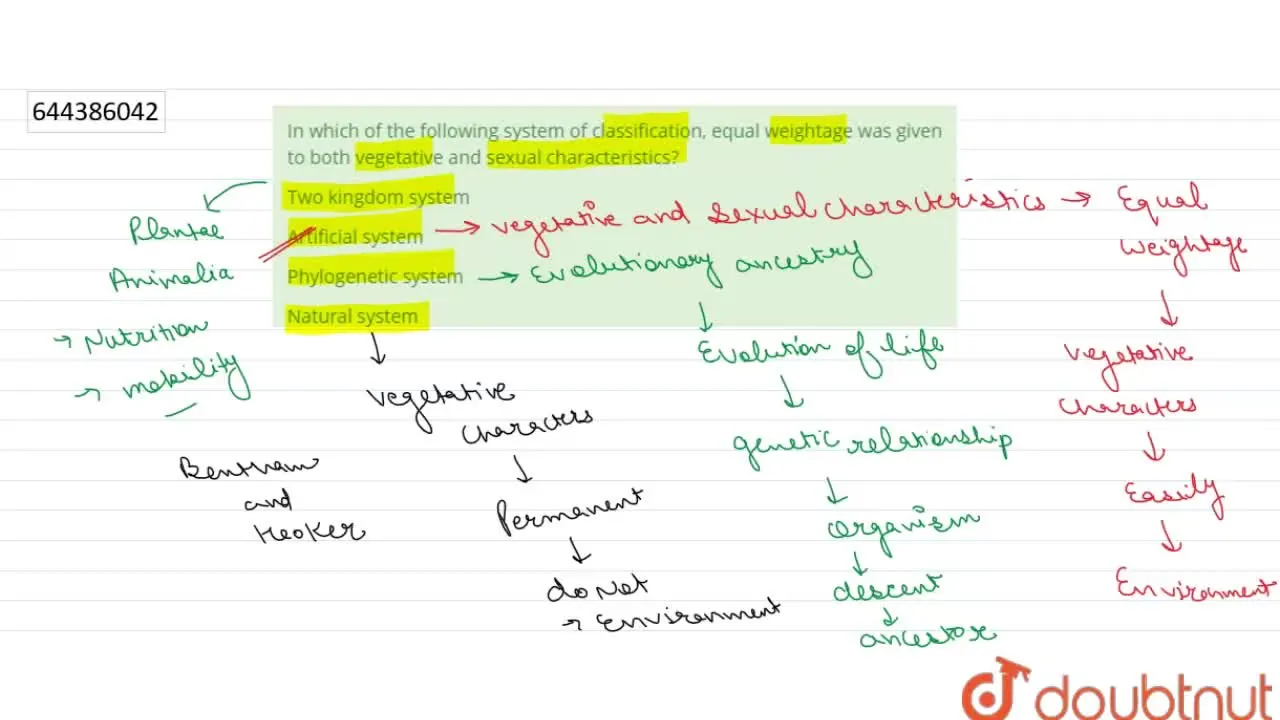 644386042
In which of the following system of classification, equal weightage was given
to both vegetative and sexual characteristics?
Two kingdom system
Artificial system
Phylogenetic system
Natural system
Plantae
Animalia
→ Nutrition
→ mobility
→ vegetative and sexual characteristics → Equal
weightage
↓
vegetative
characters
↓
Easily
↓
Environment
→ Evolutionary ancestry
↓
Evolution of life
↓
genetic relationship
↓
organism
↓
descent
↓
ancestor
↓
vegetative
characters
↓
Permanent
↓
do not
→ Environment
Bentham
and
Hooker
doubtnut